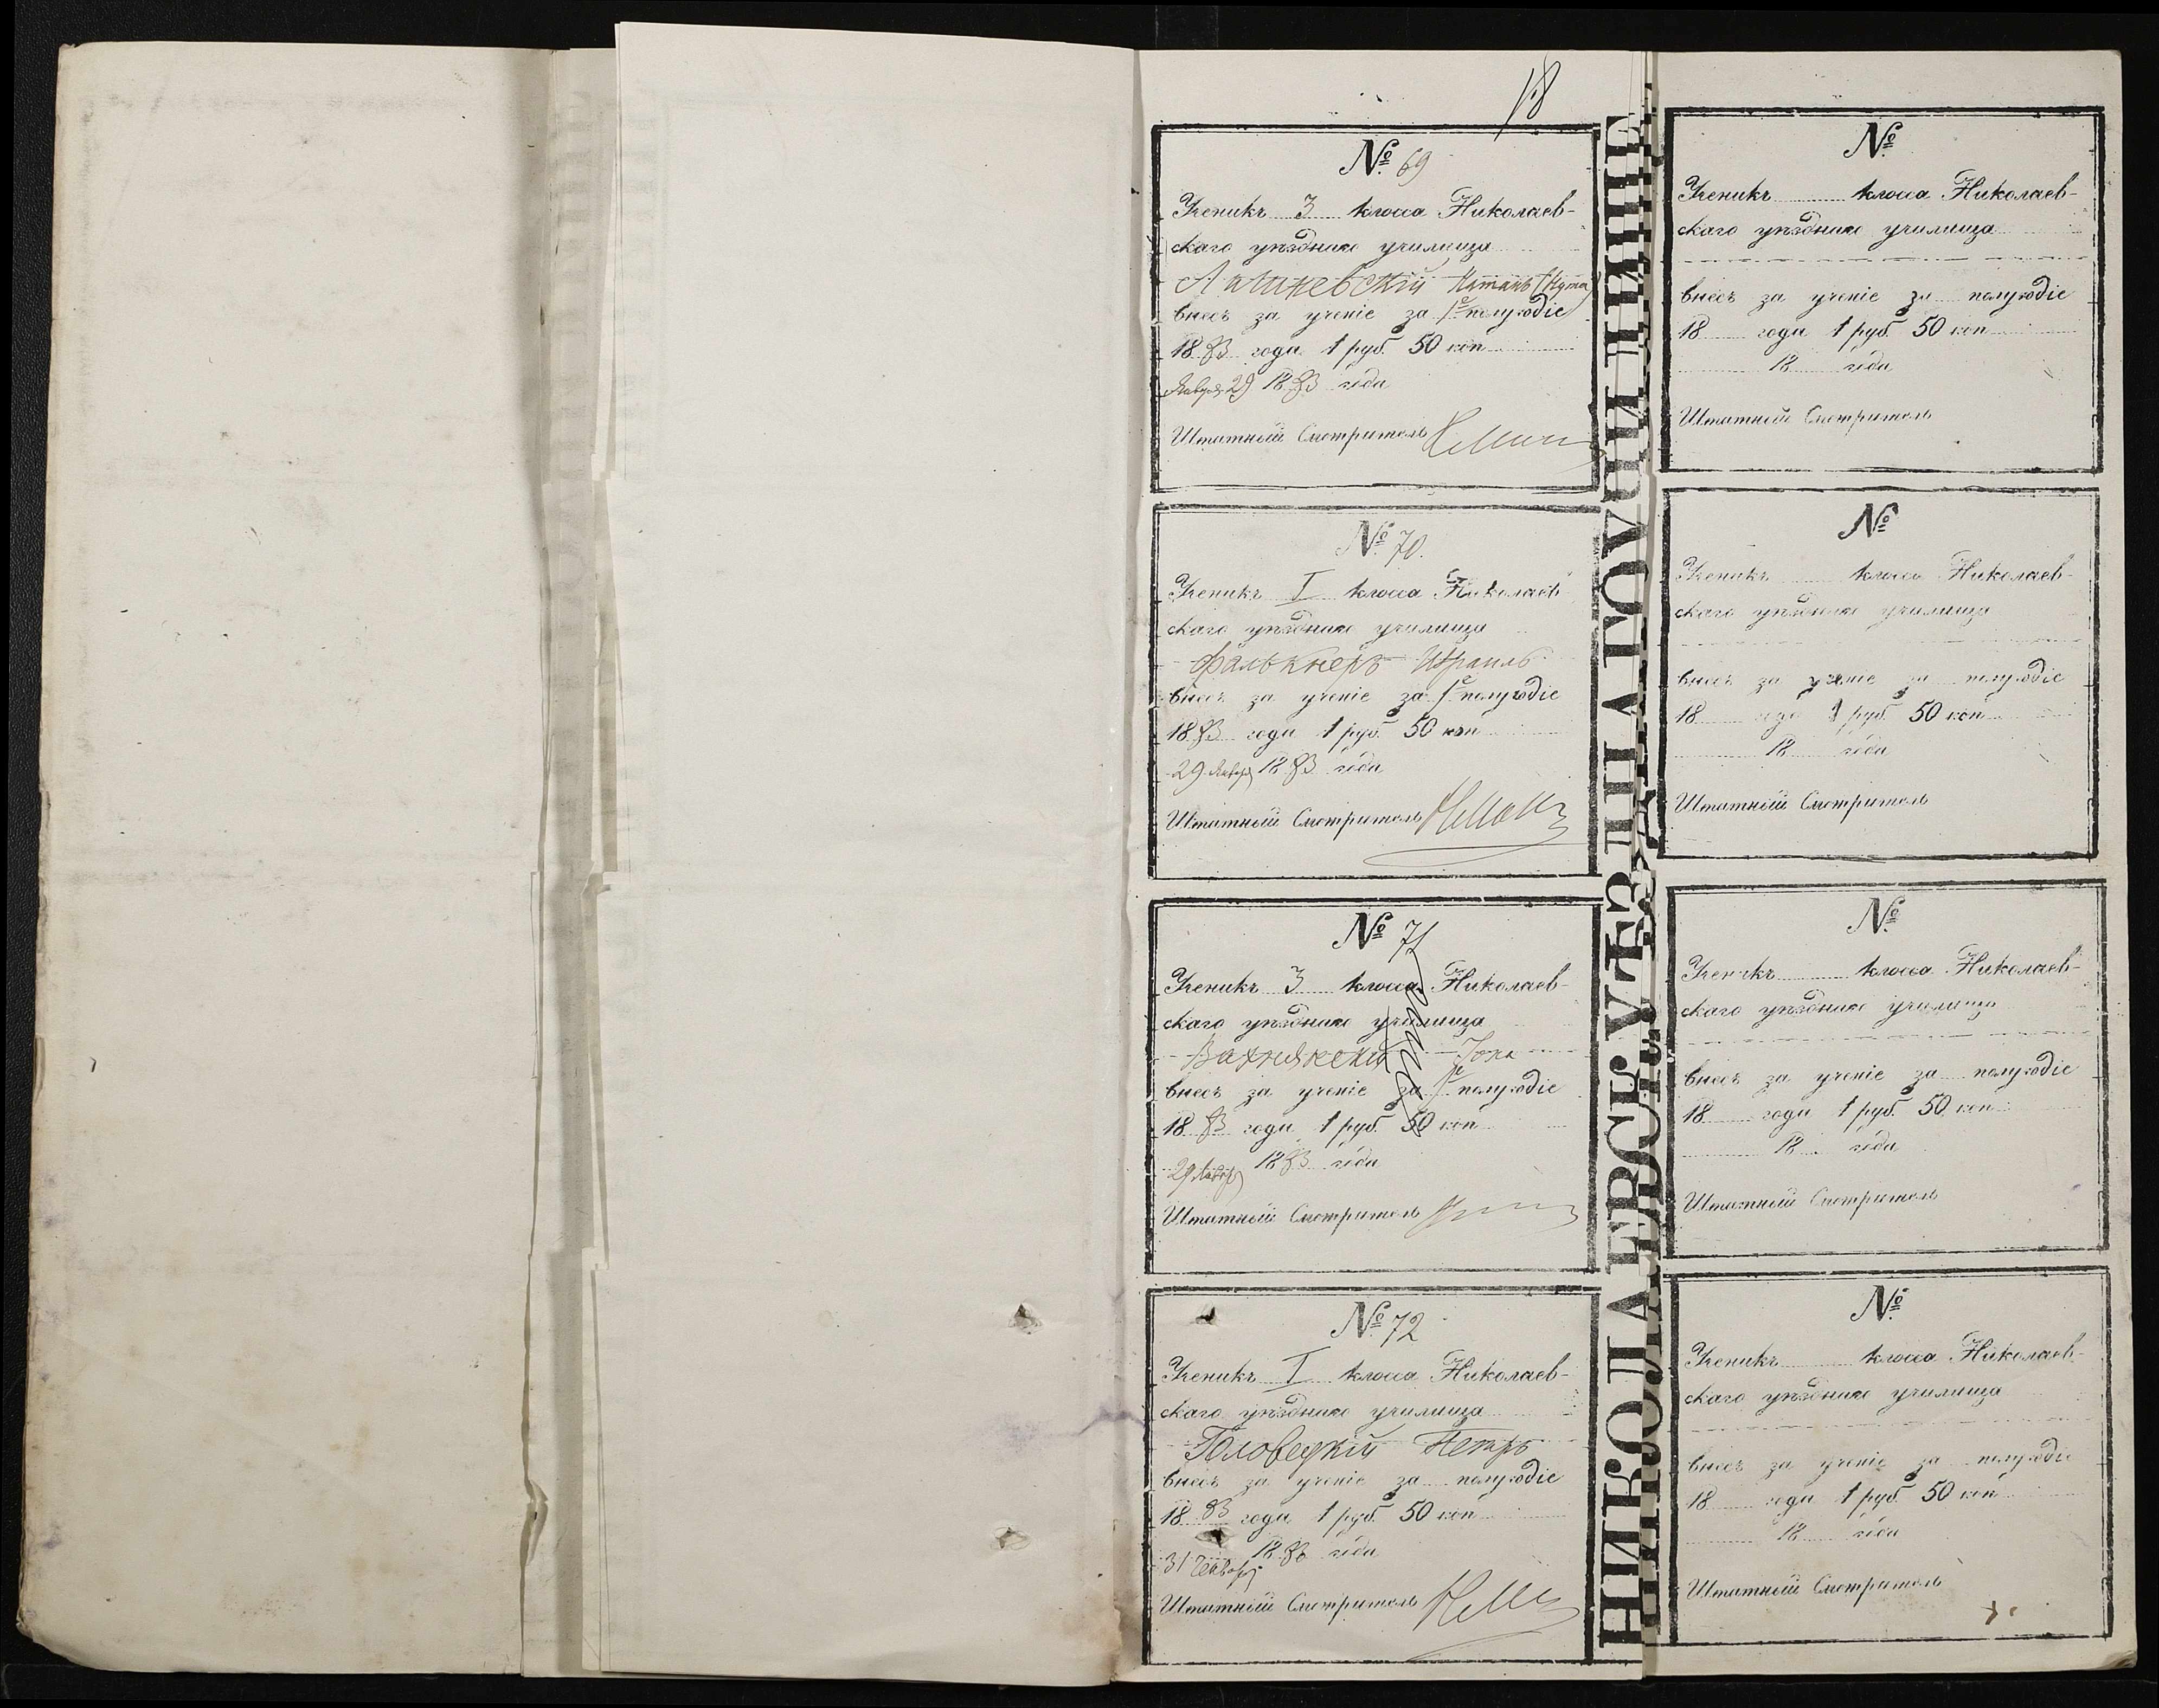 18
№ 69
Ученикъ 3 класса Николаев-
скаго уѣзднаго училища
внесъ за ученіе за 1е полугодіе
1883 года 1 руб. 50 коп
Января 29 1883 года
Штатный Смотритель
№ 70.
Ученикъ I класса Николаев-
скаго уѣзднаго училища
Фалькнеръ Израиль
внесъ за ученіе за 1е полугодіе
1883 года 1 руб. 50 коп
29 Январ 1883 года
Штатный Смотритель
№ 71
Ученикъ 3 класса Николаев-
скаго уѣзднаго училища
внесъ за ученіе за 1е полугодіе
1883 года 1 руб. 50 коп
29 Январ 1883 года
Штатный Смотритель
№ 72
Ученикъ I класса Николаев-
скаго уѣзднаго училища
Головецкій Петръ
внесъ за ученіе за полугодіе
1883 года 1 руб. 50 коп
31 Январ 1883 года
Штатный Смотритель
НИКОЛАЕВСК. УѢЗДНАГО УЧИЛИЩЕ
№
Ученикъ класса Николаев-
скаго уѣзднаго училища
внесъ за ученіе за полугодіе
18 года 1 руб. 50 коп
18 года
Штатный Смотритель
№
Ученикъ класса Николаев-
скаго уѣзднаго училища
внесъ за ученіе за полугодіе
18 года 1 руб. 50 коп
18 года
Штатный Смотритель
№
Ученикъ класса Николаев-
скаго уѣзднаго училища
внесъ за ученіе за полугодіе
18 года 1 руб. 50 коп
18 года
Штатный Смотритель
№
Ученикъ класса Николаев-
скаго уѣзднаго училища
внесъ за ученіе за полугодіе
18 года 1 руб. 50 коп
18 года
Штатный Смотритель